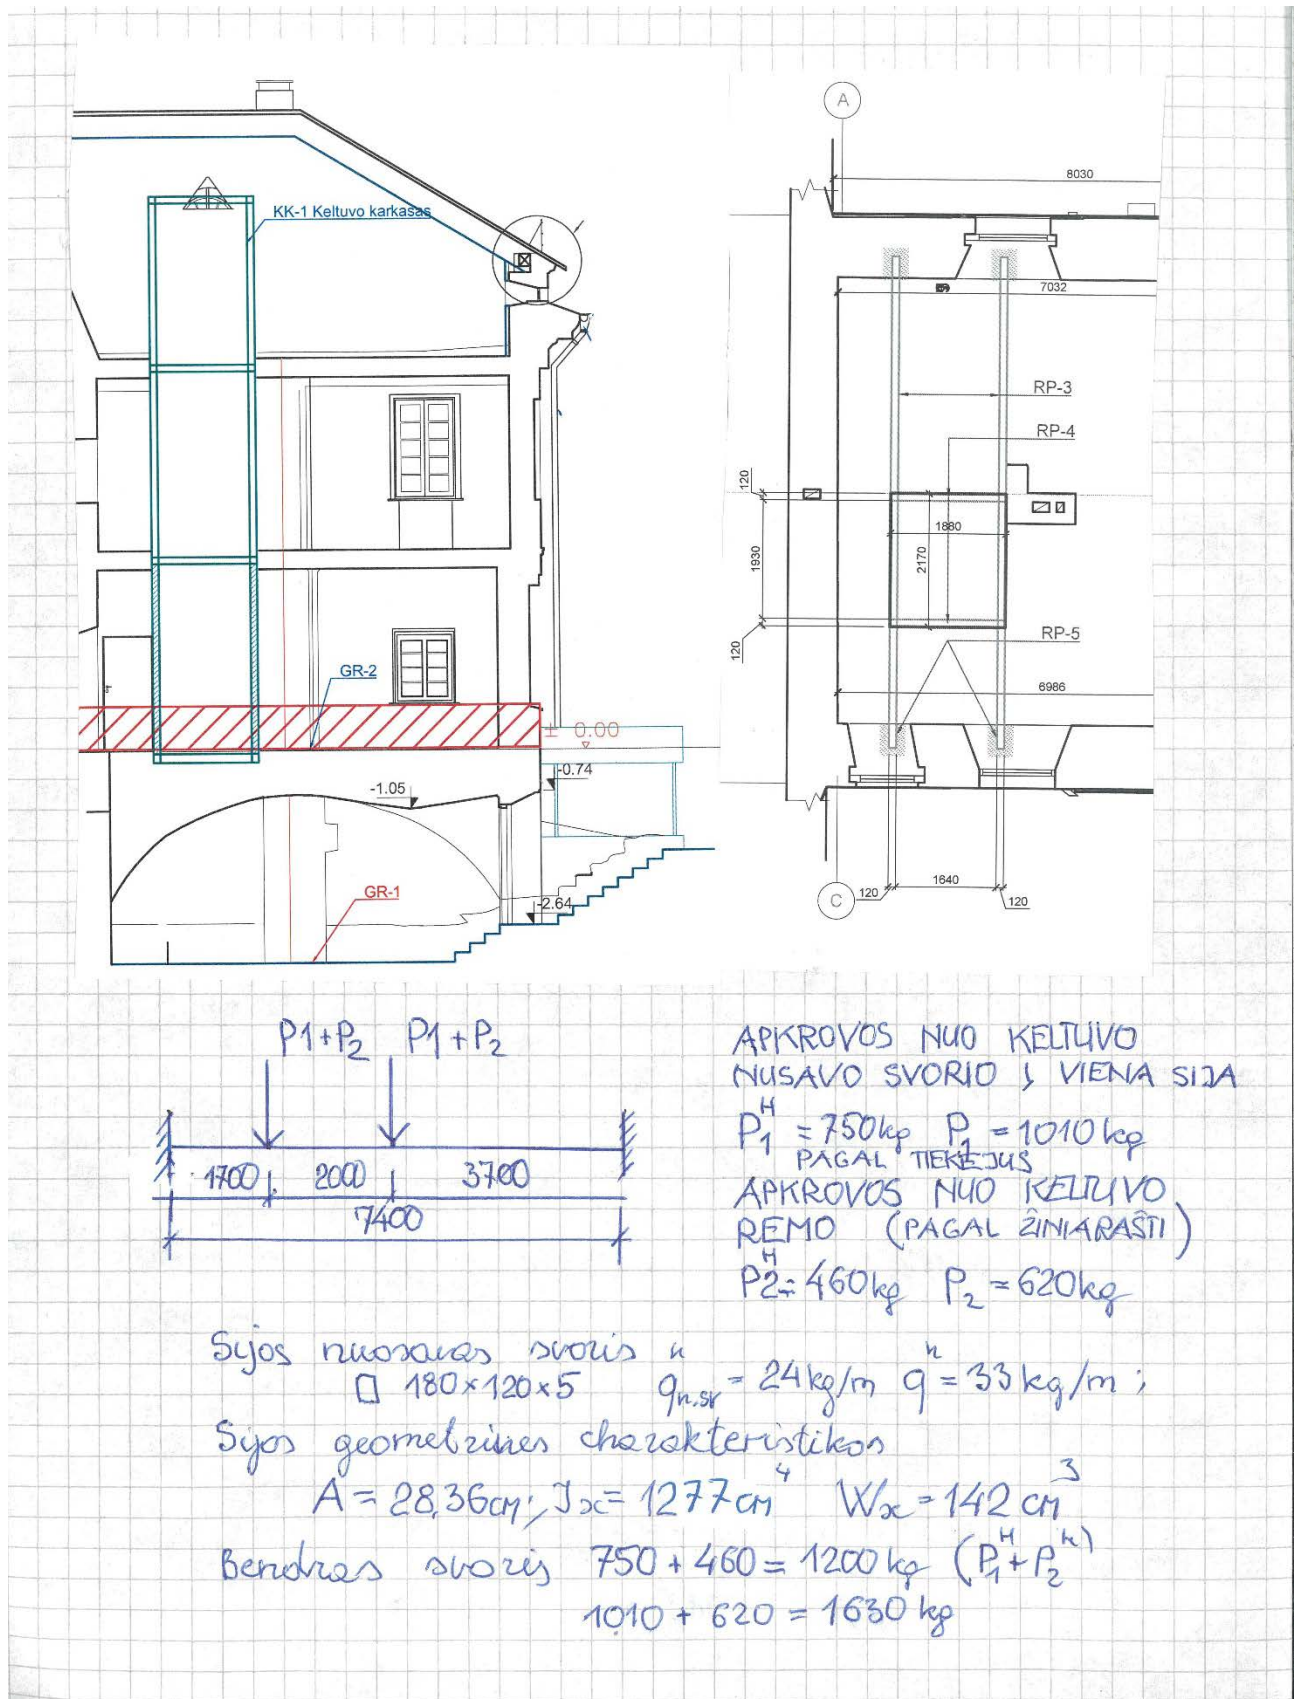 KK-1 Keltuvo karkasas
GR-2
± 0.00
-0.74
-1.05
GR-1
-2.64
A
8030
7032
RP-3
RP-4
120
1880
1930
2170
120
RP-5
6986
1640
120
120
C
P1+P₂ P1+P₂
1700 2000 3700
7400
APKROVOS NUO KELTUVO
NUSAVO SVORIO Į VIENA SIJA
P₁ᴴ = 750kg P₁ = 1010kg
PAGAL TIEKEJUS
APKROVOS NUO KELTUVO
REMO (PAGAL ŽINIARAŠTI)
P2ᴴ = 460kg P₂ = 620kg
Sijos nuosavas svoris
▯ 180×120×5 qⁿn.sv = 24kg/m qⁿ = 33kg/m;
Sijos geometrines charakteristikos
A = 28,36cm; Jx = 1277cm⁴ Wx = 142cm³
Bendras svoris 750 + 460 = 1200kg (P₁ᴴ + P₂ᴴ)
1010 + 620 = 1630kg